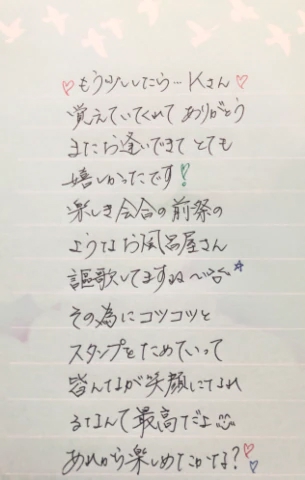 ♡もう少ししたら…Kさん♡
覚えていてくれてありがとう
またお逢いできてとても
嬉しかったです!
楽しき会合の前祭の
ようなお風呂屋さん
謳歌してますね〜☆
その為にコツコツと
スタンプをためていって
皆んなが笑顔になれ
るなんて最高だよ
あれから楽しめたかな?♡♡